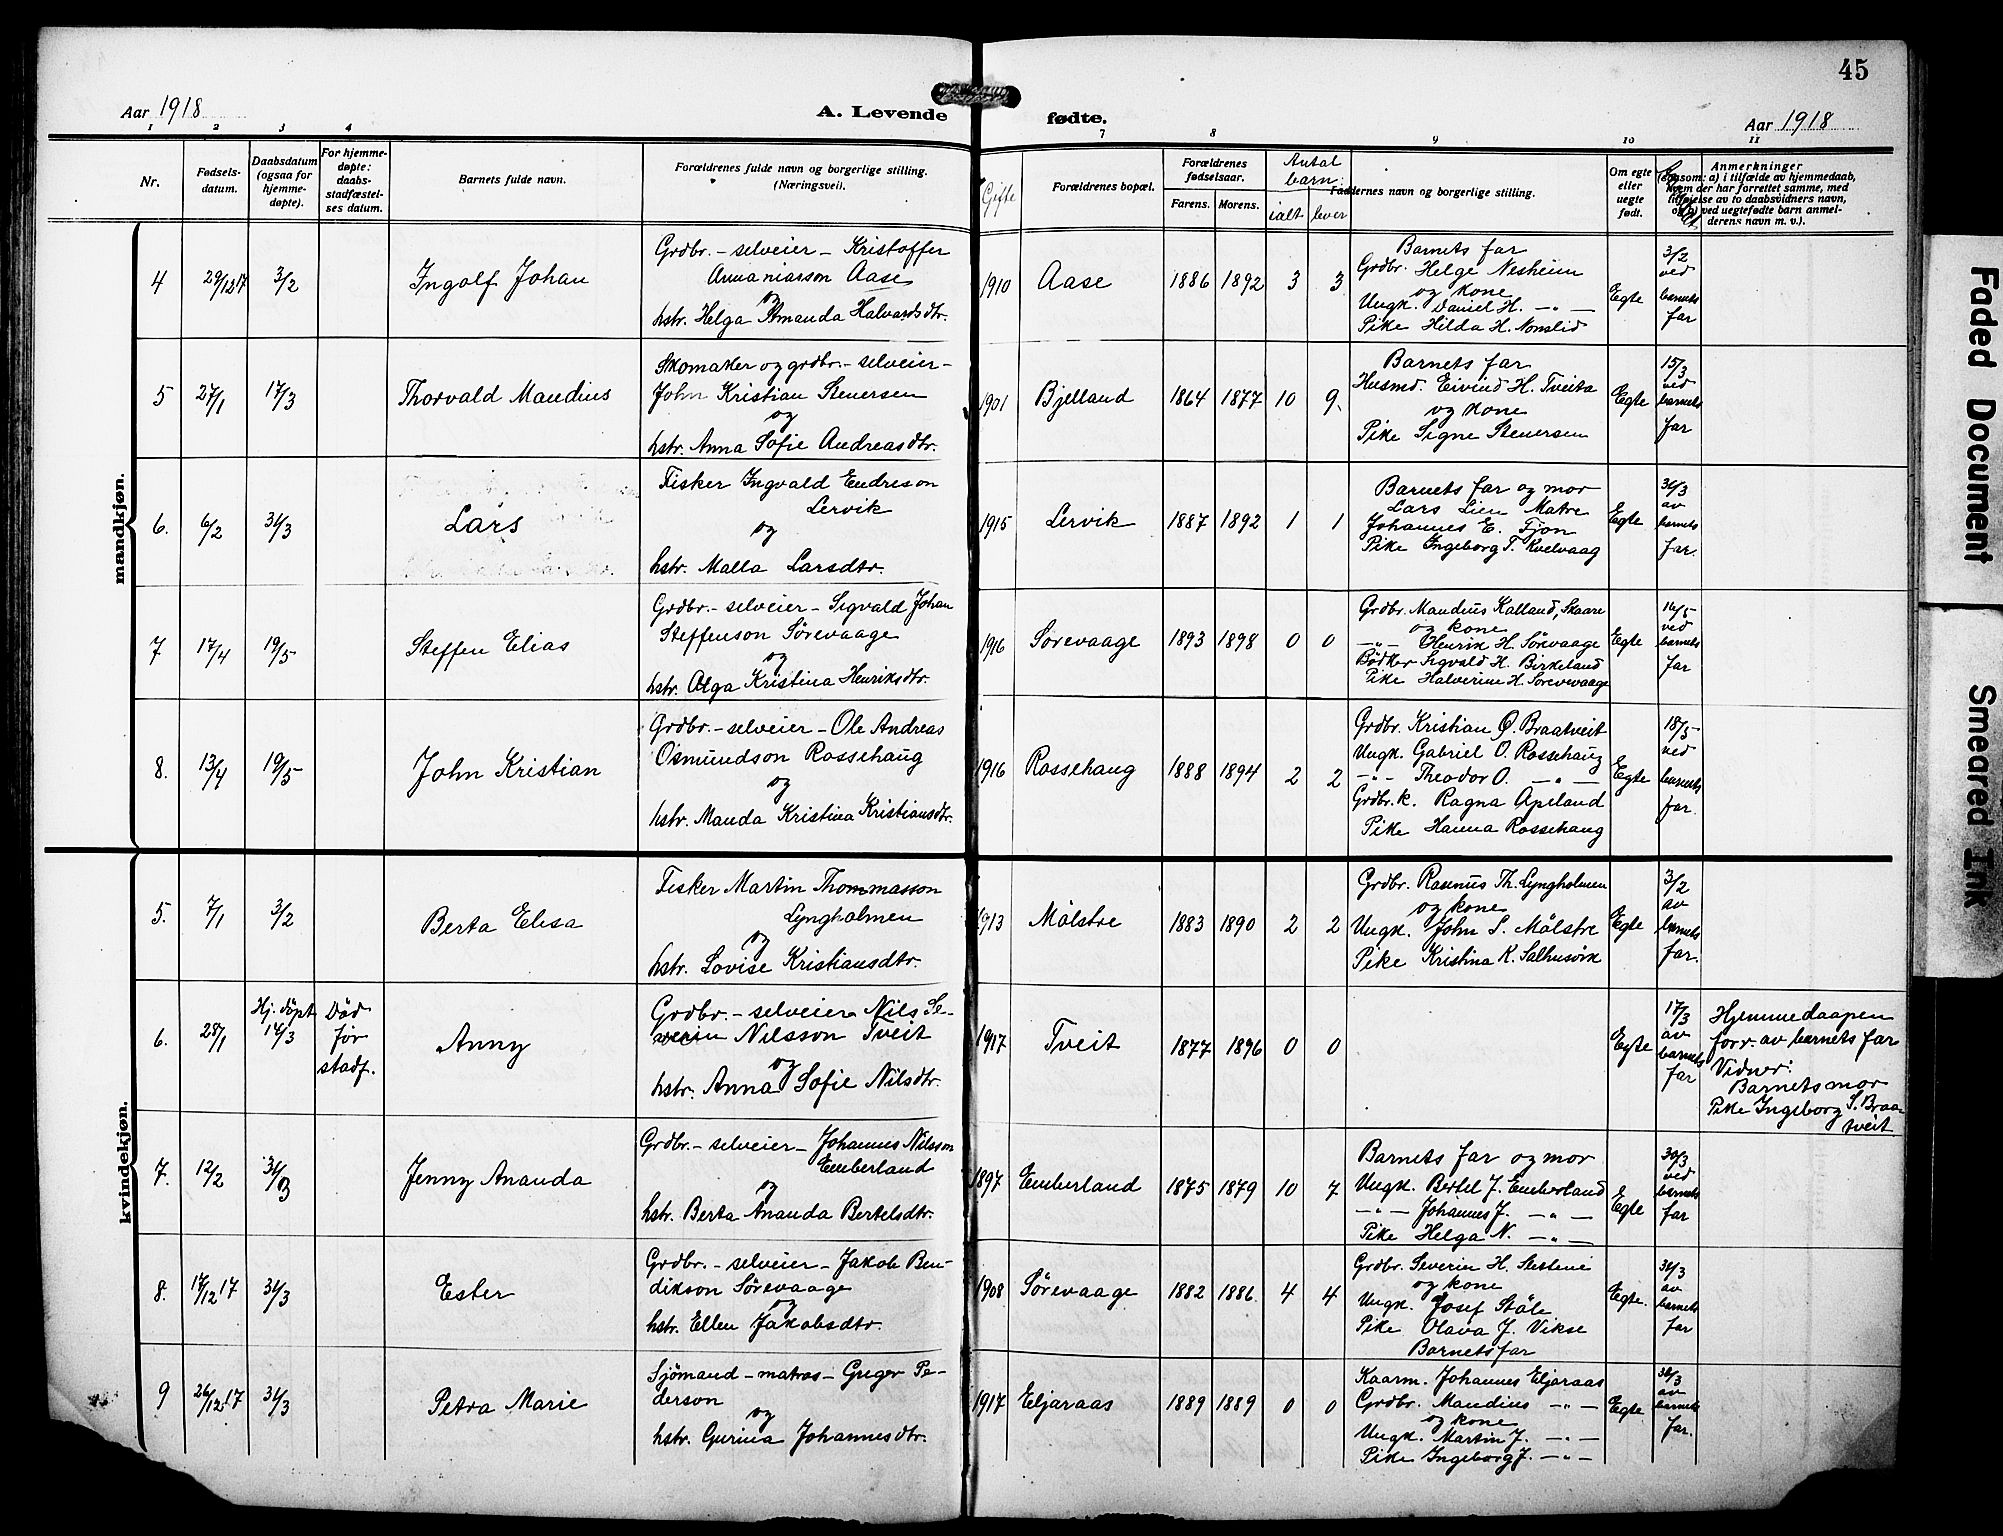 45
Aar 1918
A. Levende fødte.
Aar 1918
1 2 3 4 7 8 9 10 11
Nr.
Fødsels-
datum.
Daabsdatum
(ogsaa for
hjemme-
døpte).
For hjemme-
døpte:
daabs-
stadfæstel-
ses datum.
Barnets fulde navn.
Forældrenes fulde navn og borgerlige stilling.
(Næringsvei).
Gifte
Forældrenes bopæl.
Forældrenes
fødselsaar.
Farens. Morens.
Antal
barn
ialt lever
Faddernes navn og borgerlige stilling.
Om egte
eller
uegte
født.
Anmerkninger
(saasom: a) i tilfælde av hjemmedaab,
hvem der har forrettet samme, med
tilføielse av to daabsvidners navn,
og b) ved uegtefødte barn anmel-
derens navn m. v.).
mandkjøn.
4 29/12 17 3/2 Ingolf Johan
Grdbr. - selveier - Kristoffer
Annaniasson Aase
og
hstr. Helga Amanda Halvardsdtr.
1910 Aase 1886 1892 3 3
Barnets far
Grdbr. Helge Nesheim
og kone
Ungk. Daniel H. -"-
Pike Hilda H. Nonslid
Egte
3/2
ved
barnets
far
5 27/1 17/3 Thorvald Mandius
Skomaker og grdbr. - selveier -
John Kristian Steuersen
og
hstr. Anna Sofie Andreasdtr.
1901 Bjelland 1864 1877 10 9.
Barnets far
Husmd. Eivind H. Tveita
og kone
Pike Signe Steuersen
Egte
15/3
ved
barnets
far
6. 6/2 31/3 Lars
Fisker Ingvald Endreson
Lervik
og
hstr. Malla Larsdtr.
1915 Lervik 1887 1892 1 1
Barnets far og mor
Lars Lien Matre
Johannes E. Tjon
Pike Ingeborg T. Kvelvaag
Egte
31/3
av
barnets
far.
7 17/4 19/5 Steffen Elias
Grdbr. - selveier - Sigvald Johan
Steffenson Sørevaage
og
hstr. Olga Kristina Henriksdtr.
1916 Sørevaage 1893 1898 0 0
Grdbr. Mandius Kalland, Skaare
og kone
-"- Henrik H. Sørvaage
Bødker Sigvald H. Birkeland
Pike Halverine H. Sørevaage
Egte
16/5
ved
barnets
far
8. 13/4 19/5 John Kristian
Grdbr. - selveier - Ole Andreas
Osmundson Rossehaug
og
hstr. Manda Kristina Kristiansdtr.
1916 Rossehaug 1888 1894 2 2
Grdbr. Kristian Ø. Braatveit
Ungk. Gabriel O. Rossehaug
-"- Theodor O. -"-
Grdbr.k. Ragna Apeland
Pike Hanna Rossehaug
Egte
18/5
ved
barnets
far.
kvindekjøn.
5. 7/1 3/2 Berta Elisa
Fisker Martin Thommasson
Lyngholmen
og
hstr. Lovise Kristiansdtr.
1913 Mølstre 1883 1890 2 2
Grdbr. Rasmus Th. Lyngholmen
og kone
Ungk. John S. Mølstre
Pike Kristina K. Salhusvik
Egte
3/2
av
barnets
far.
6. 28/1 Hj. døpt 14/3 Død
før
stadf. Anny
Grdbr. - selveier Nils Se-
verin Nilsson Tveit
og
hstr. Anna Sofie Nilsdtr.
1917 Tveit 1877 1896 0 0
Egte
17/3
av
barnets
far
Hjemmedaapen
forr. av barnets far
Vidner:
Barnets mor
Pike Ingeborg S. Braa-
tveit
7. 12/2 31/3 Jenny Ananda
Grdbr. - selveier - Johannes Nilsson
Emberland
og
hstr. Berta Ananda Bertelsdtr.
1897 Emberland 1875 1879 10 7
Barnets far og mor
Ungk. Bertel J. Emberland
-"- Johannes J. -"-
Pike Helga N. -"-
Egte
30/3
ved
barnets
far
8. 17/12 17 31/3 Ester
Grdbr. - selveier - Jakob Ben-
dikson Sørevaage
og
hstr. Ellen Jakobsdtr.
1908 Sørevaage 1882 1886. 4 4
Grdbr. Severin H.
og kone
Ungk. Josef Ståle
Pike Olava J. Vikse
Barnets far
Egte.
31/3
av
barnets
far
9 26/12 17 31/3 Petra Marie
Sjømand - matros - Greger Pe-
derson
og
hstr. Gurina Johannesdtr.
1917 Eljaraas 1889 1889 0 0
Kaarm. Johannes Eljaraas
Grdbr. Mandius -"-
og kone
Ungk. Martin J. -"-
Pike Ingeborg J. -"-
Egte
31/3
av
barnets
far.
Faded Document
Smeared Ink